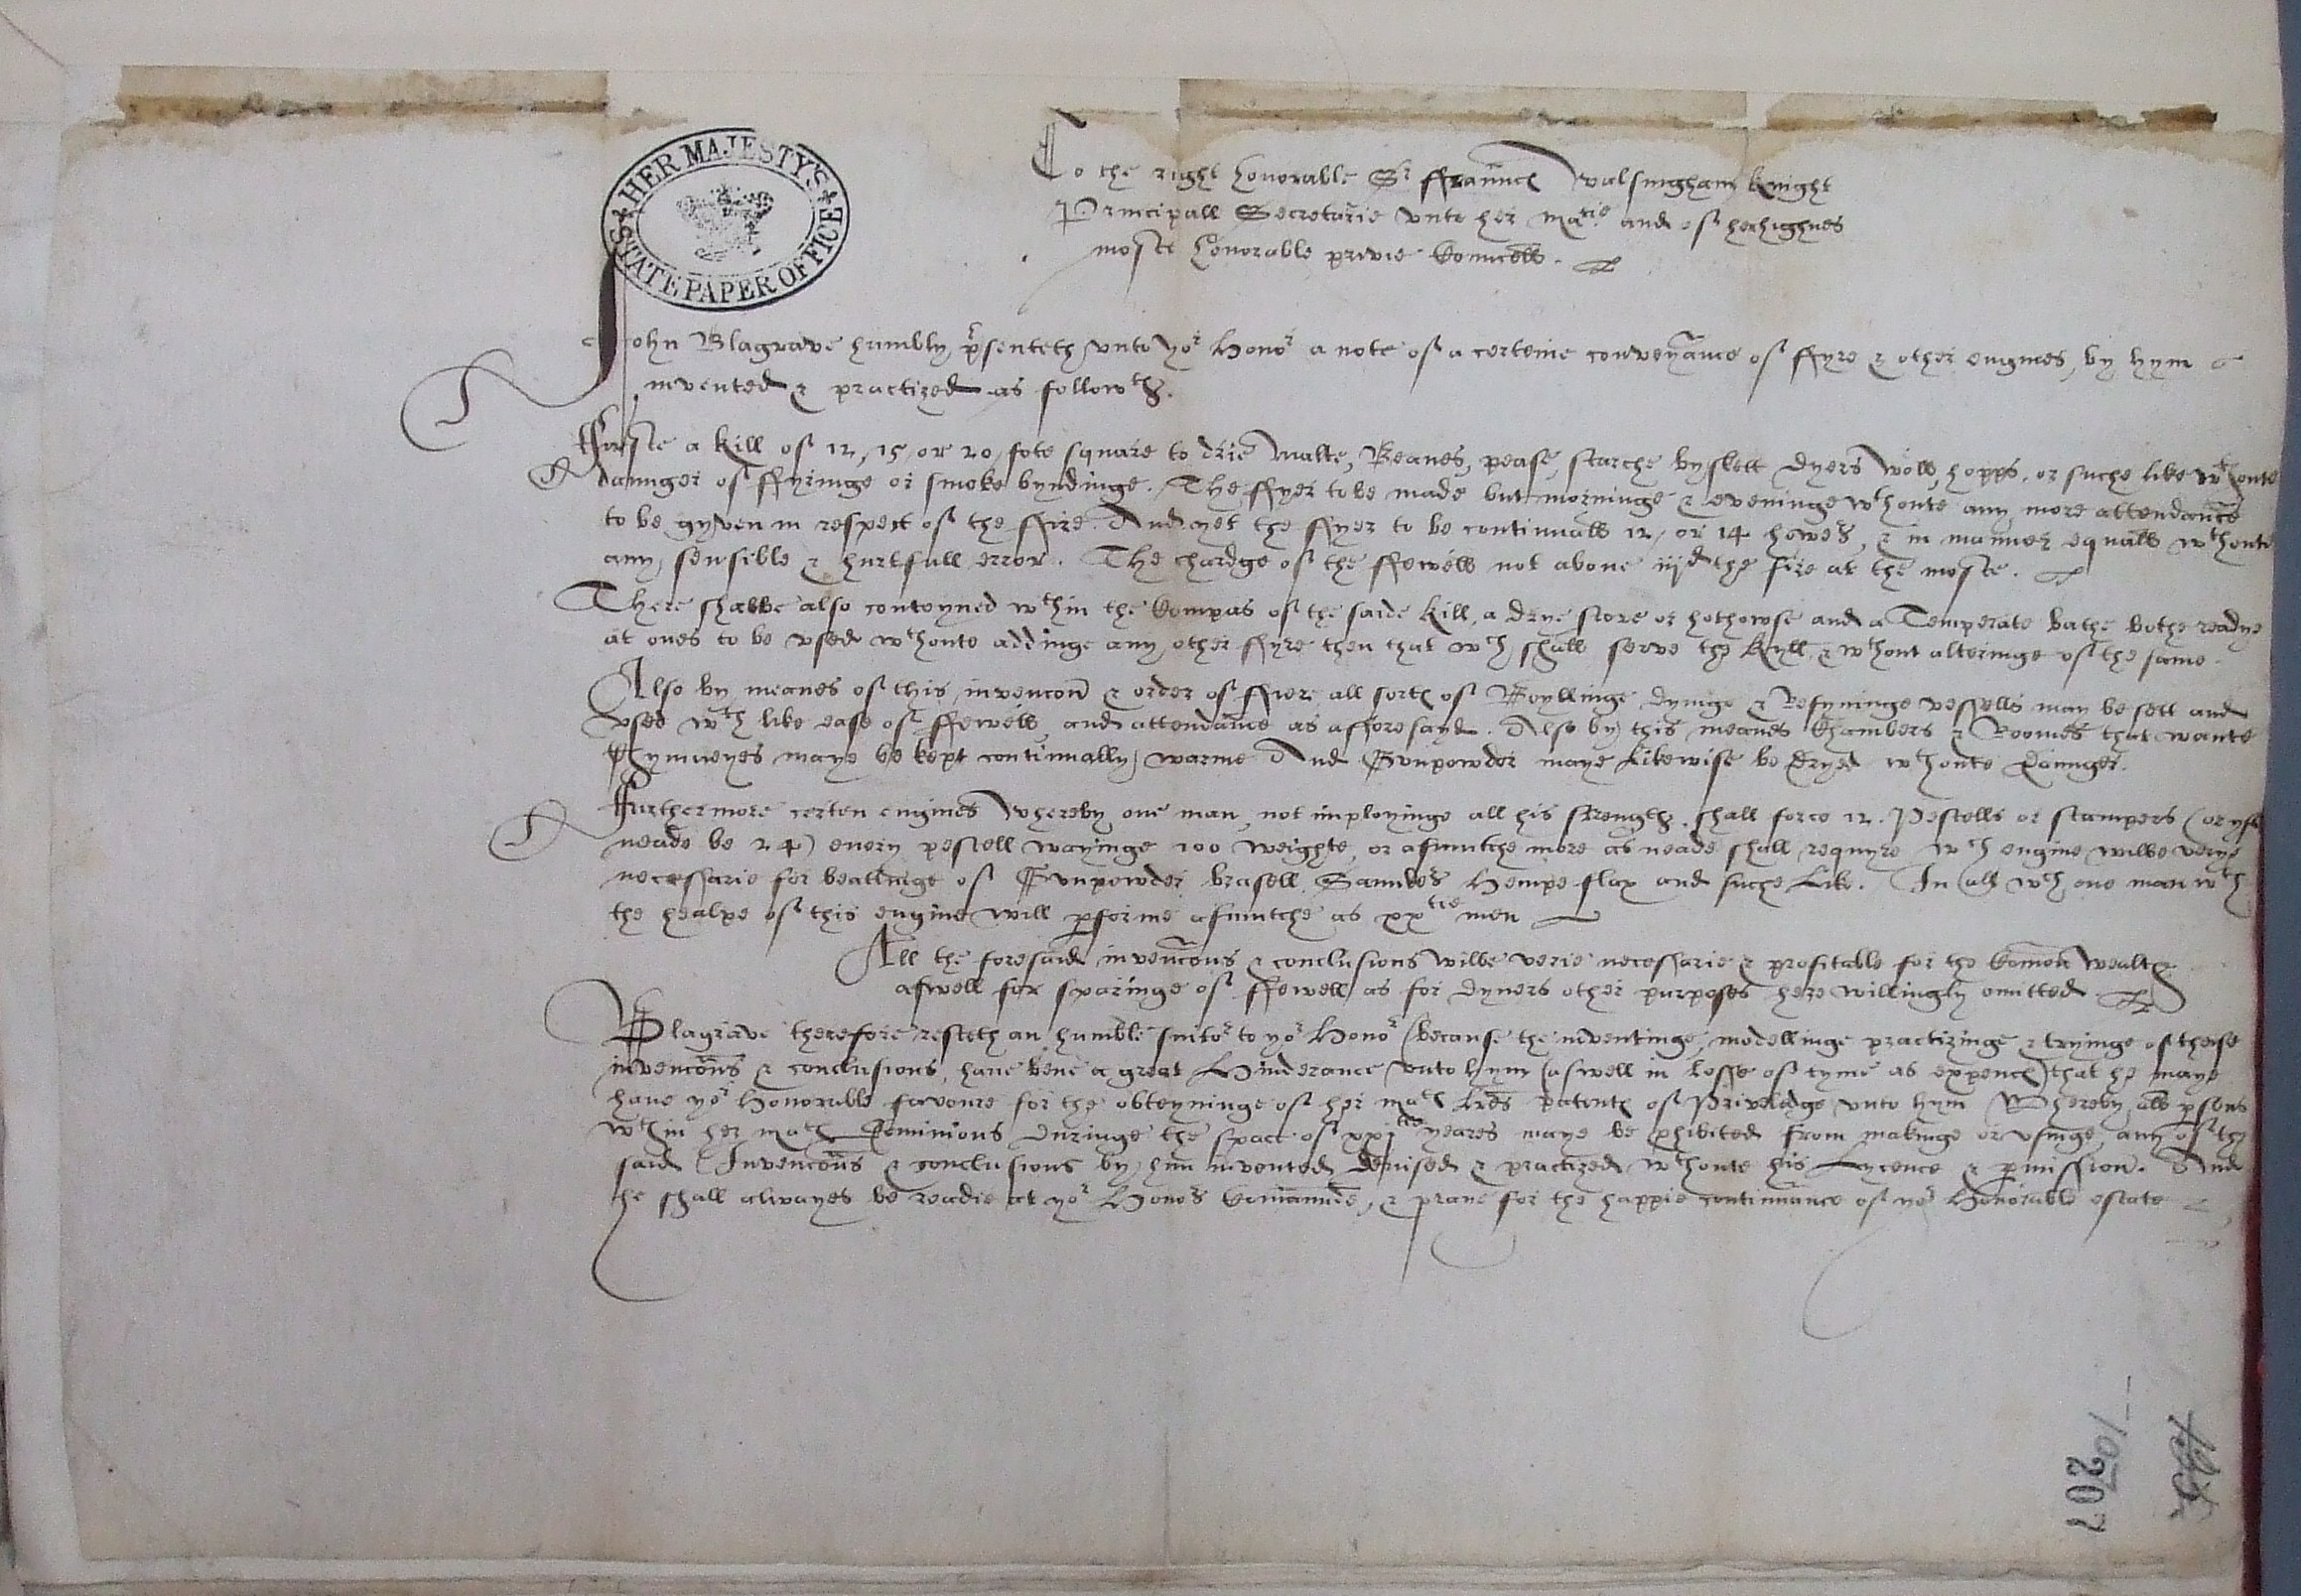 HER MAJESTY'S
STATE PAPER OFFICE
To the right honorable Sr ffraunc Walsingham knight
Principall Secretarie vnto her Matie and of her highnes
moste honorable privie Councell.
John Blagrave humbly psenteth vnto yor Honor a note of a certeine conveyance of ffyre & other engines, by hym
invented & practized as followth.
ffirste a kill of 12, 15, or 20, fote square to drie Malte, Beanes, pease, starche byskett dyers woll, hopps, or suche like wthoute
daunger of ffyringe or smoke byndinge. The ffyer to be made but morninge & eveninge wthoute any more attendance
to be gyven in respect of the ffire. And yet the ffyer to be continuall 12, or 14 howers, & in manner equall wthoute
any sensible & hurtfull error. The chardge of the ffewell not above iijd the fire at the moste.
There shalbe also conteyned wthin the Compas of the saide kill, a drye stove or hothowse and a Temperate bathe bothe readye
at ones to be vsed wthoute addinge any other ffyre then that wch shall serve the kyll, & wthout alteringe of the same.
Also by meanes of this invencon & order of ffiere all sortes of Boyllinge dyinge & Refyninge vessells may be sett and
vsed wth like ease of ffewell and attendance as aforesayd. Also by this meanes Chambers & Roomes that wante
Chymneyes maye be kept continually warme And Gunpowder maye likewise be dryed wthoute daunger.
ffurthermore certen engines whereby one man, not imployinge all his strength, shall force 12. Pestells or stampers (or yf
neade be 24) every pestell wayinge 100 weighte, or asmutche more as neade shall requyre wch engine wilbe verye
necessarie for beatinge of Gunpowder brasell, Saunders Hempe flax and suche like. In all wch one man wth
the healpe of this engine will pforme asmutche as xxtie men
All the foresaid invencons & conclusions wilbe verie necessarie & profitable for the Comon wealth
aswell for sparinge of ffewell as for dyvers other purposes here willingly omitted.
Blagrave therefore resteth an humble suitor to yor Honor (because the inventinge, modellinge practizinge & tryinge of these
invencons & conclusions, have bene a great Hinderance vnto hym (aswell in losse of tyme as expences) that he maye
have yor Honorable favoure for the obteyninge of her mats lres patents of Priveledge vnto hym Whereby all psons
wthin her mats dominions duringe the space of xxjtie yeares maye be phibited from makinge or vsinge any of the
said Invencons & conclusions by him invented devised & practized wthoute his Lycence & pmission. And
he shall alwayes be readie at yor Honors Comaunde, & praye for the happie continuance of yor Honorable estate
107
207